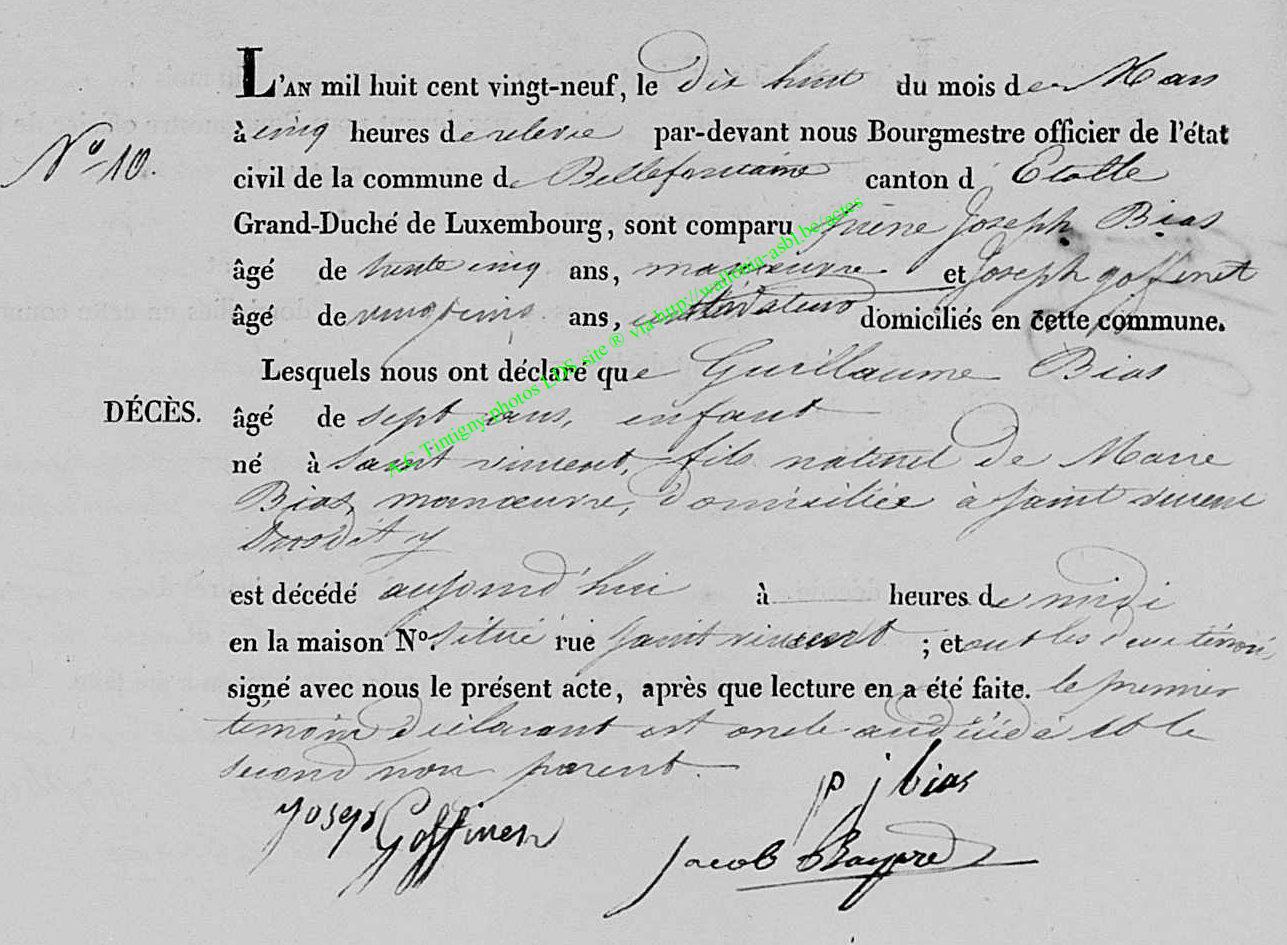 L'AN mil huit cent vingt-neuf, le dix huit du mois de Mars
à cinq heures de relevée par-devant nous Bourgmestre officier de l'état
N° 10.
civil de la commune de Bellefontaine canton d' Etalle
Grand-Duché de Luxembourg, sont comparu Joseph Bias
âgé de trente cinq ans, manœuvre et Joseph goffinet
âgé de ans, cultivateur domiciliés en cette commune.
Lesquels nous ont déclaré que Guillaume Bias
DÉCÈS.
âgé de sept ans, enfant
né à Saint vincent, fils naturel de Marie
Bias, manœuvre, domiciliée à saint vincent
est décédé aujourd'hui à heures de midi
en la maison N° situé rue saint vincent ; et ont les deux témoins
signé avec nous le présent acte, après que lecture en a été faite. le premier
témoin déclarant est oncle au décédé et le
second non parent.
p j bias
Joseph Goffinet
Jacob
A.E. Tintigny photos LDS, site ® via http://wallonia-asbl.be/actes